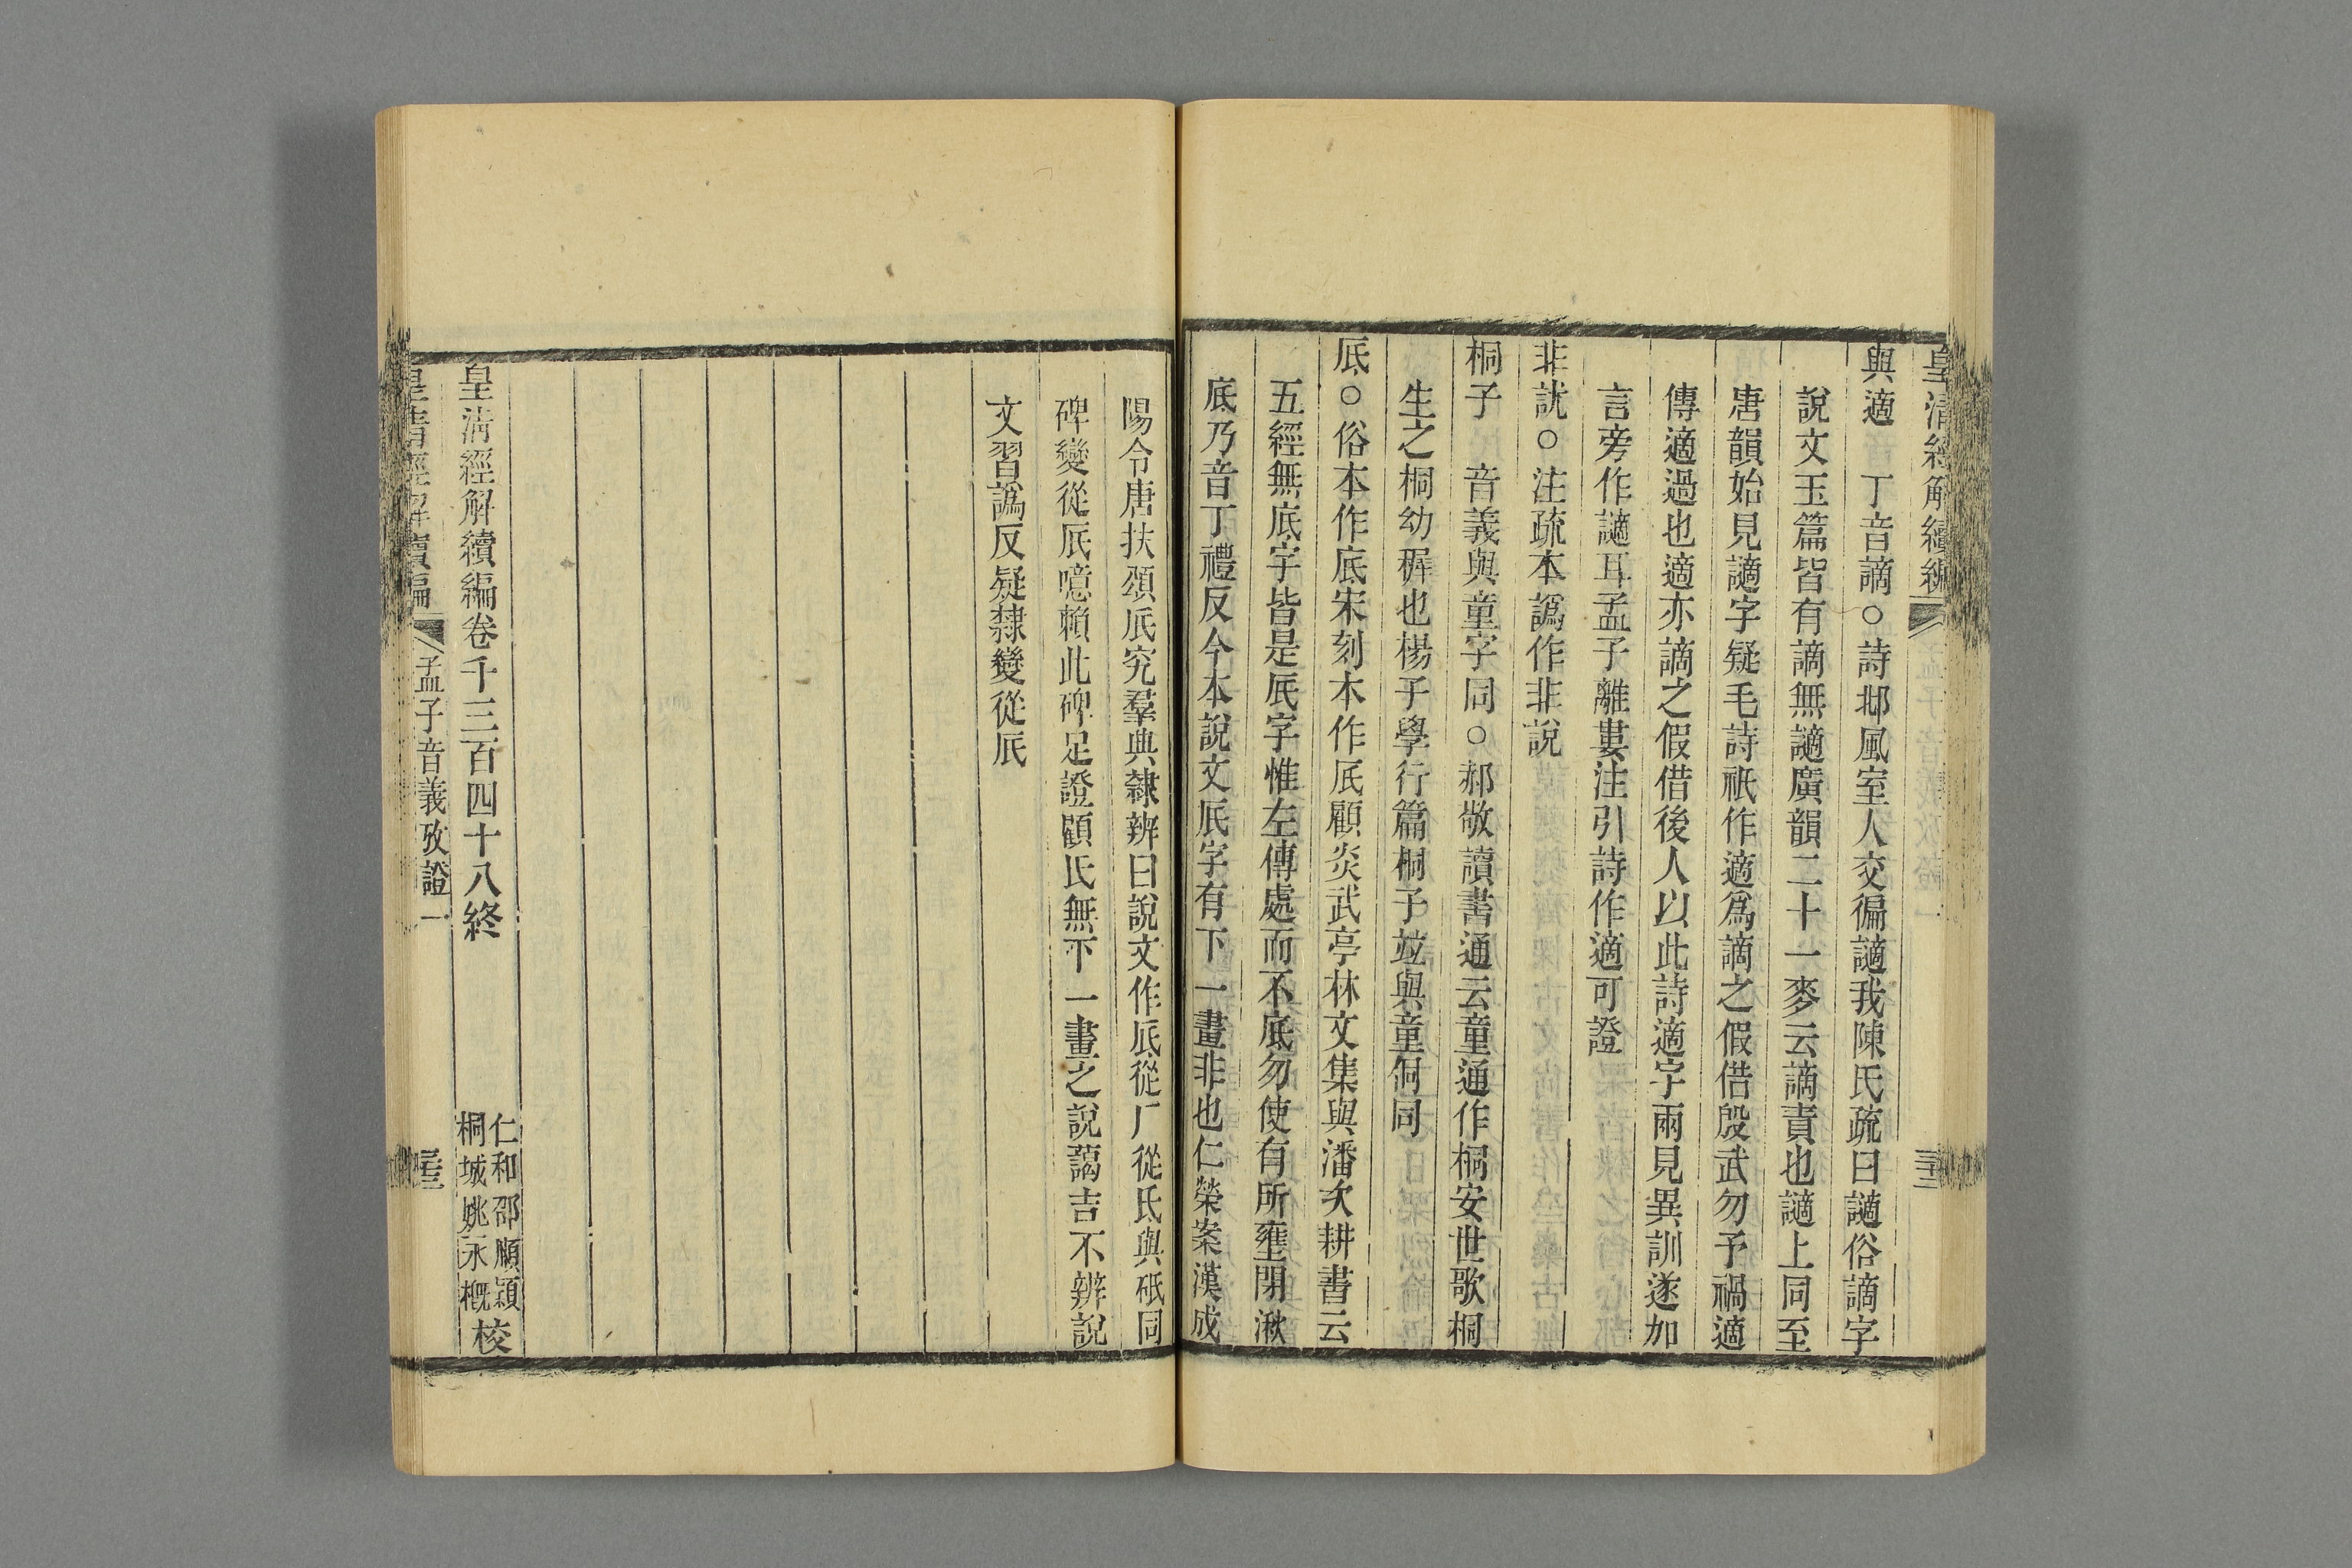 皇清經解續編
與適　丁音謫○詩邶風室人交徧讁我陳氏疏曰讁俗謫字
說文玉篇皆有謫無讁廣韻二十一麥云謫責也讁上同至
唐韻始見讁字疑毛詩祇作適爲謫之假借殷武勿予禍適
傳適過也適亦謫之假借後人以此詩適字兩見異訓遂加
言旁作讁耳孟子離婁注引詩作適可證
非訧○注疏本譌作非說
桐子　音義與童字同○郝敬讀書通云童通作桐安世歌桐
生之桐幼穉也楊子學行篇桐子竝與童侗同
厎○俗本作底宋刻本作厎顧炎武亭林文集與潘次耕書云
五經無底字皆是厎字惟左傳處而不底勿使有所壅閉湫
底乃音丁禮反今本說文厎字有下一畫非也仁榮案漢成
陽令唐扶頌厎究羣典隸辨曰說文作厎從厂從氐與砥同
碑變從厎噫賴此碑足證顧氏無下一畫之說藹吉不辨說
文習譌反疑隸變從厎
皇清經解續編卷千三百四十八終
仁和邵順潁
桐城姚永概
校
皇清經解續編
孟子音義攷證一